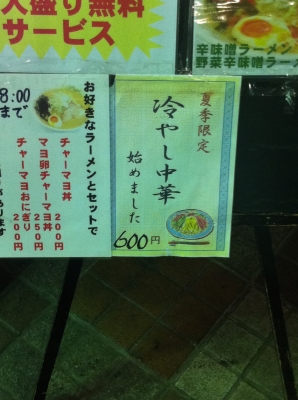 大盛り無料
サービス
辛味噌ラーメン
野菜辛味噌ラーメ
8:00
まで
お好きなラーメンとセットで
チャーマヨ丼 200円
マヨ卵チャーマヨ丼 250円
チャーマヨおにぎり 200円
夏季限定
冷やし中華
始めました
600円